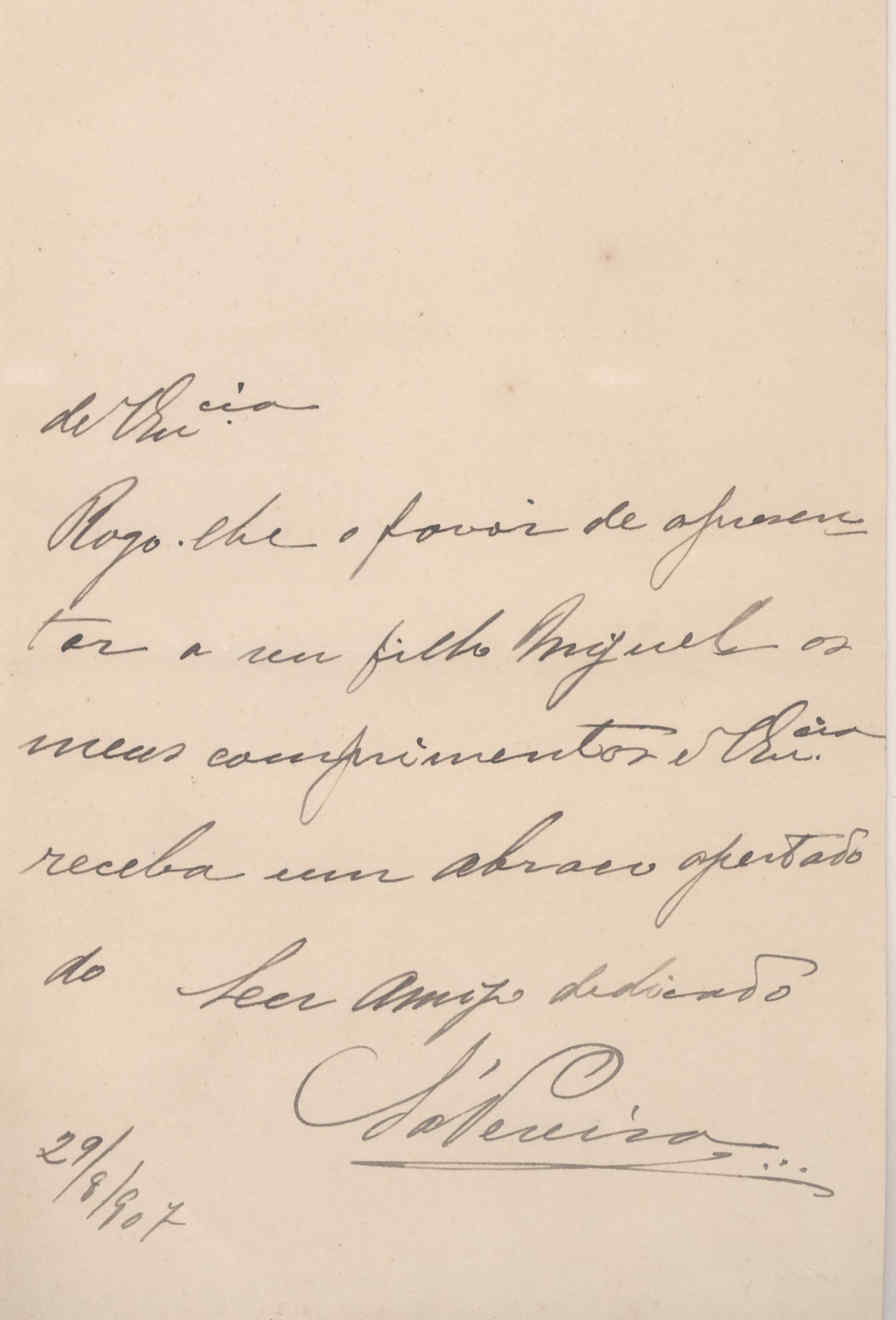 de V Ex.cia
Rogo-lhe o favor de apresen-
tar a seu filho Miguel os
meus comprimentos e V Ex.cia
receba um abraco apertado
do Seu Amigo dedicado
Sá Pereira
29/8/907